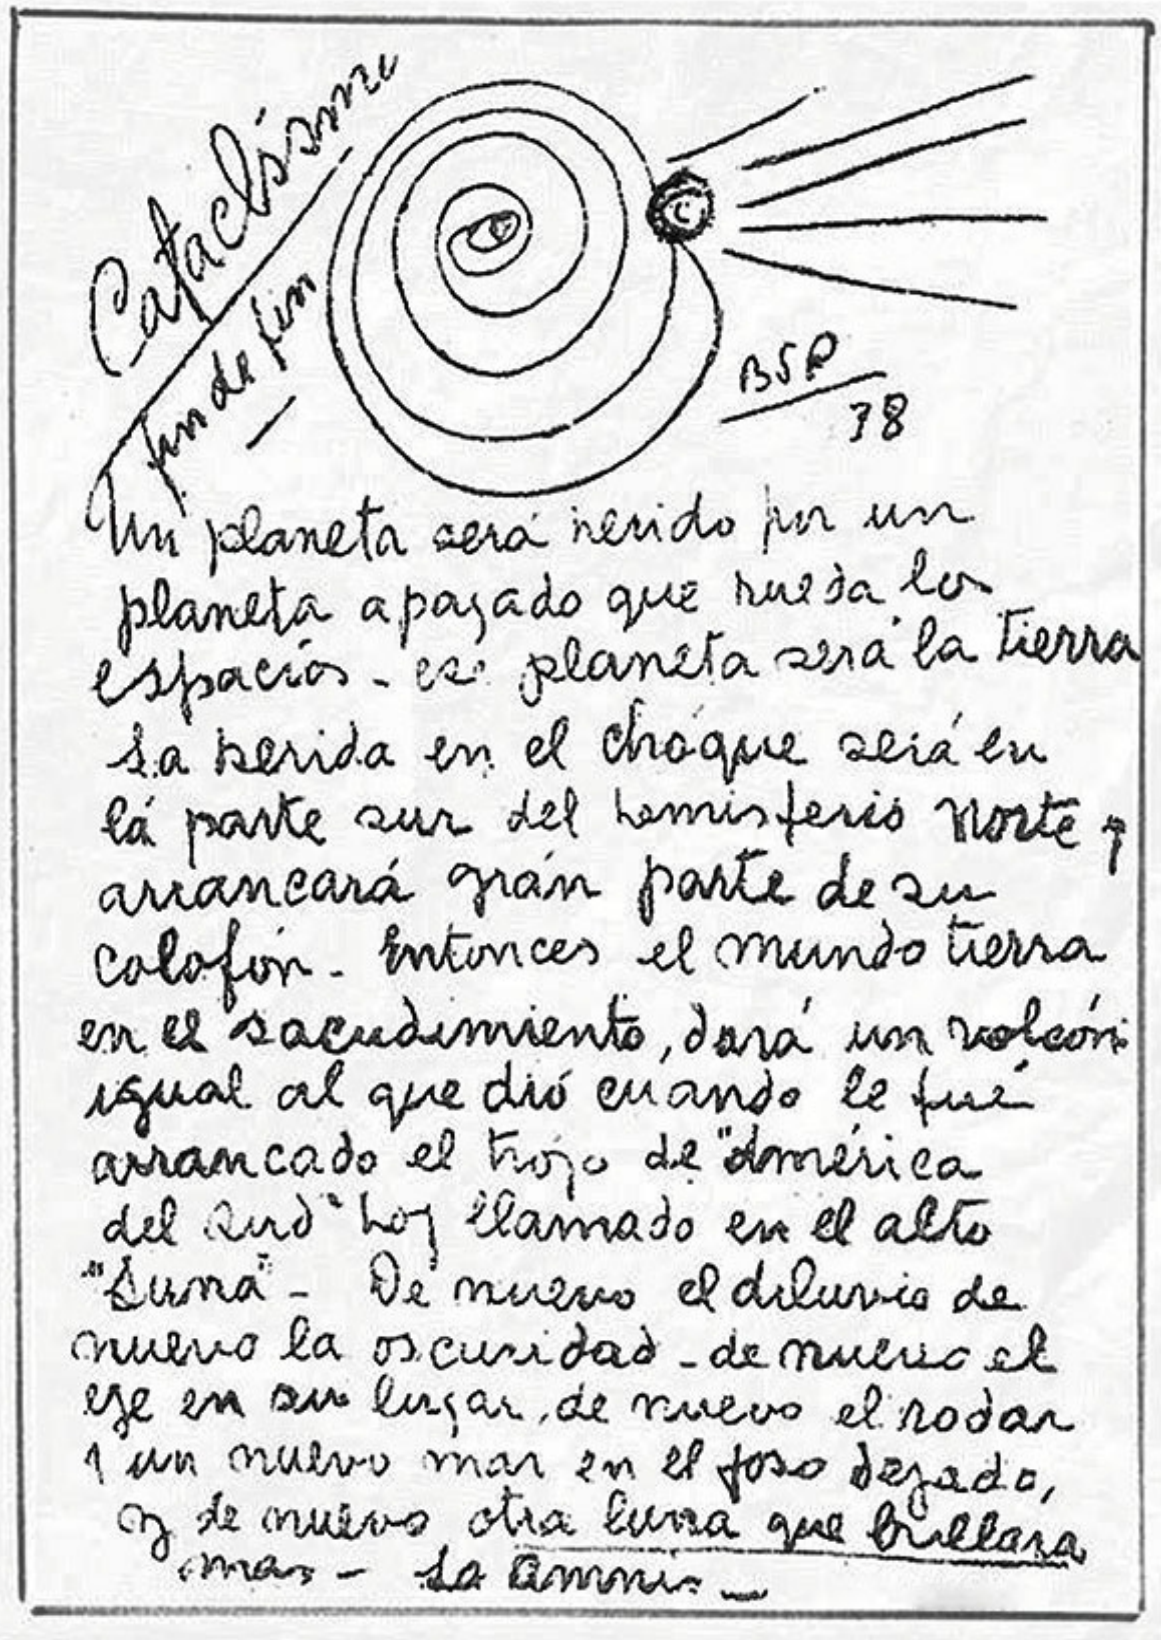 Cataclismo
fin de fin
BSP
38
Un planeta será herido por un
planeta apagado que rueda los
espacios - ese planeta será la tierra
La herida en el choque será en
la parte sur del hemisferio Norte y
arrancará gran parte de su
colofón - Entonces el mundo tierra
en el sacudimiento, dará un volcón
igual al que dió cuando le fué
arrancado el trozo de "América
del Sud" hoy llamado en el alto
"Luna" - De nuevo el diluvio de
nuevo la oscuridad - de nuevo el
eje en su lugar, de nuevo el rodar
y un nuevo mar en el foso dejado,
y de nuevo otra luna que brillara
mas - La